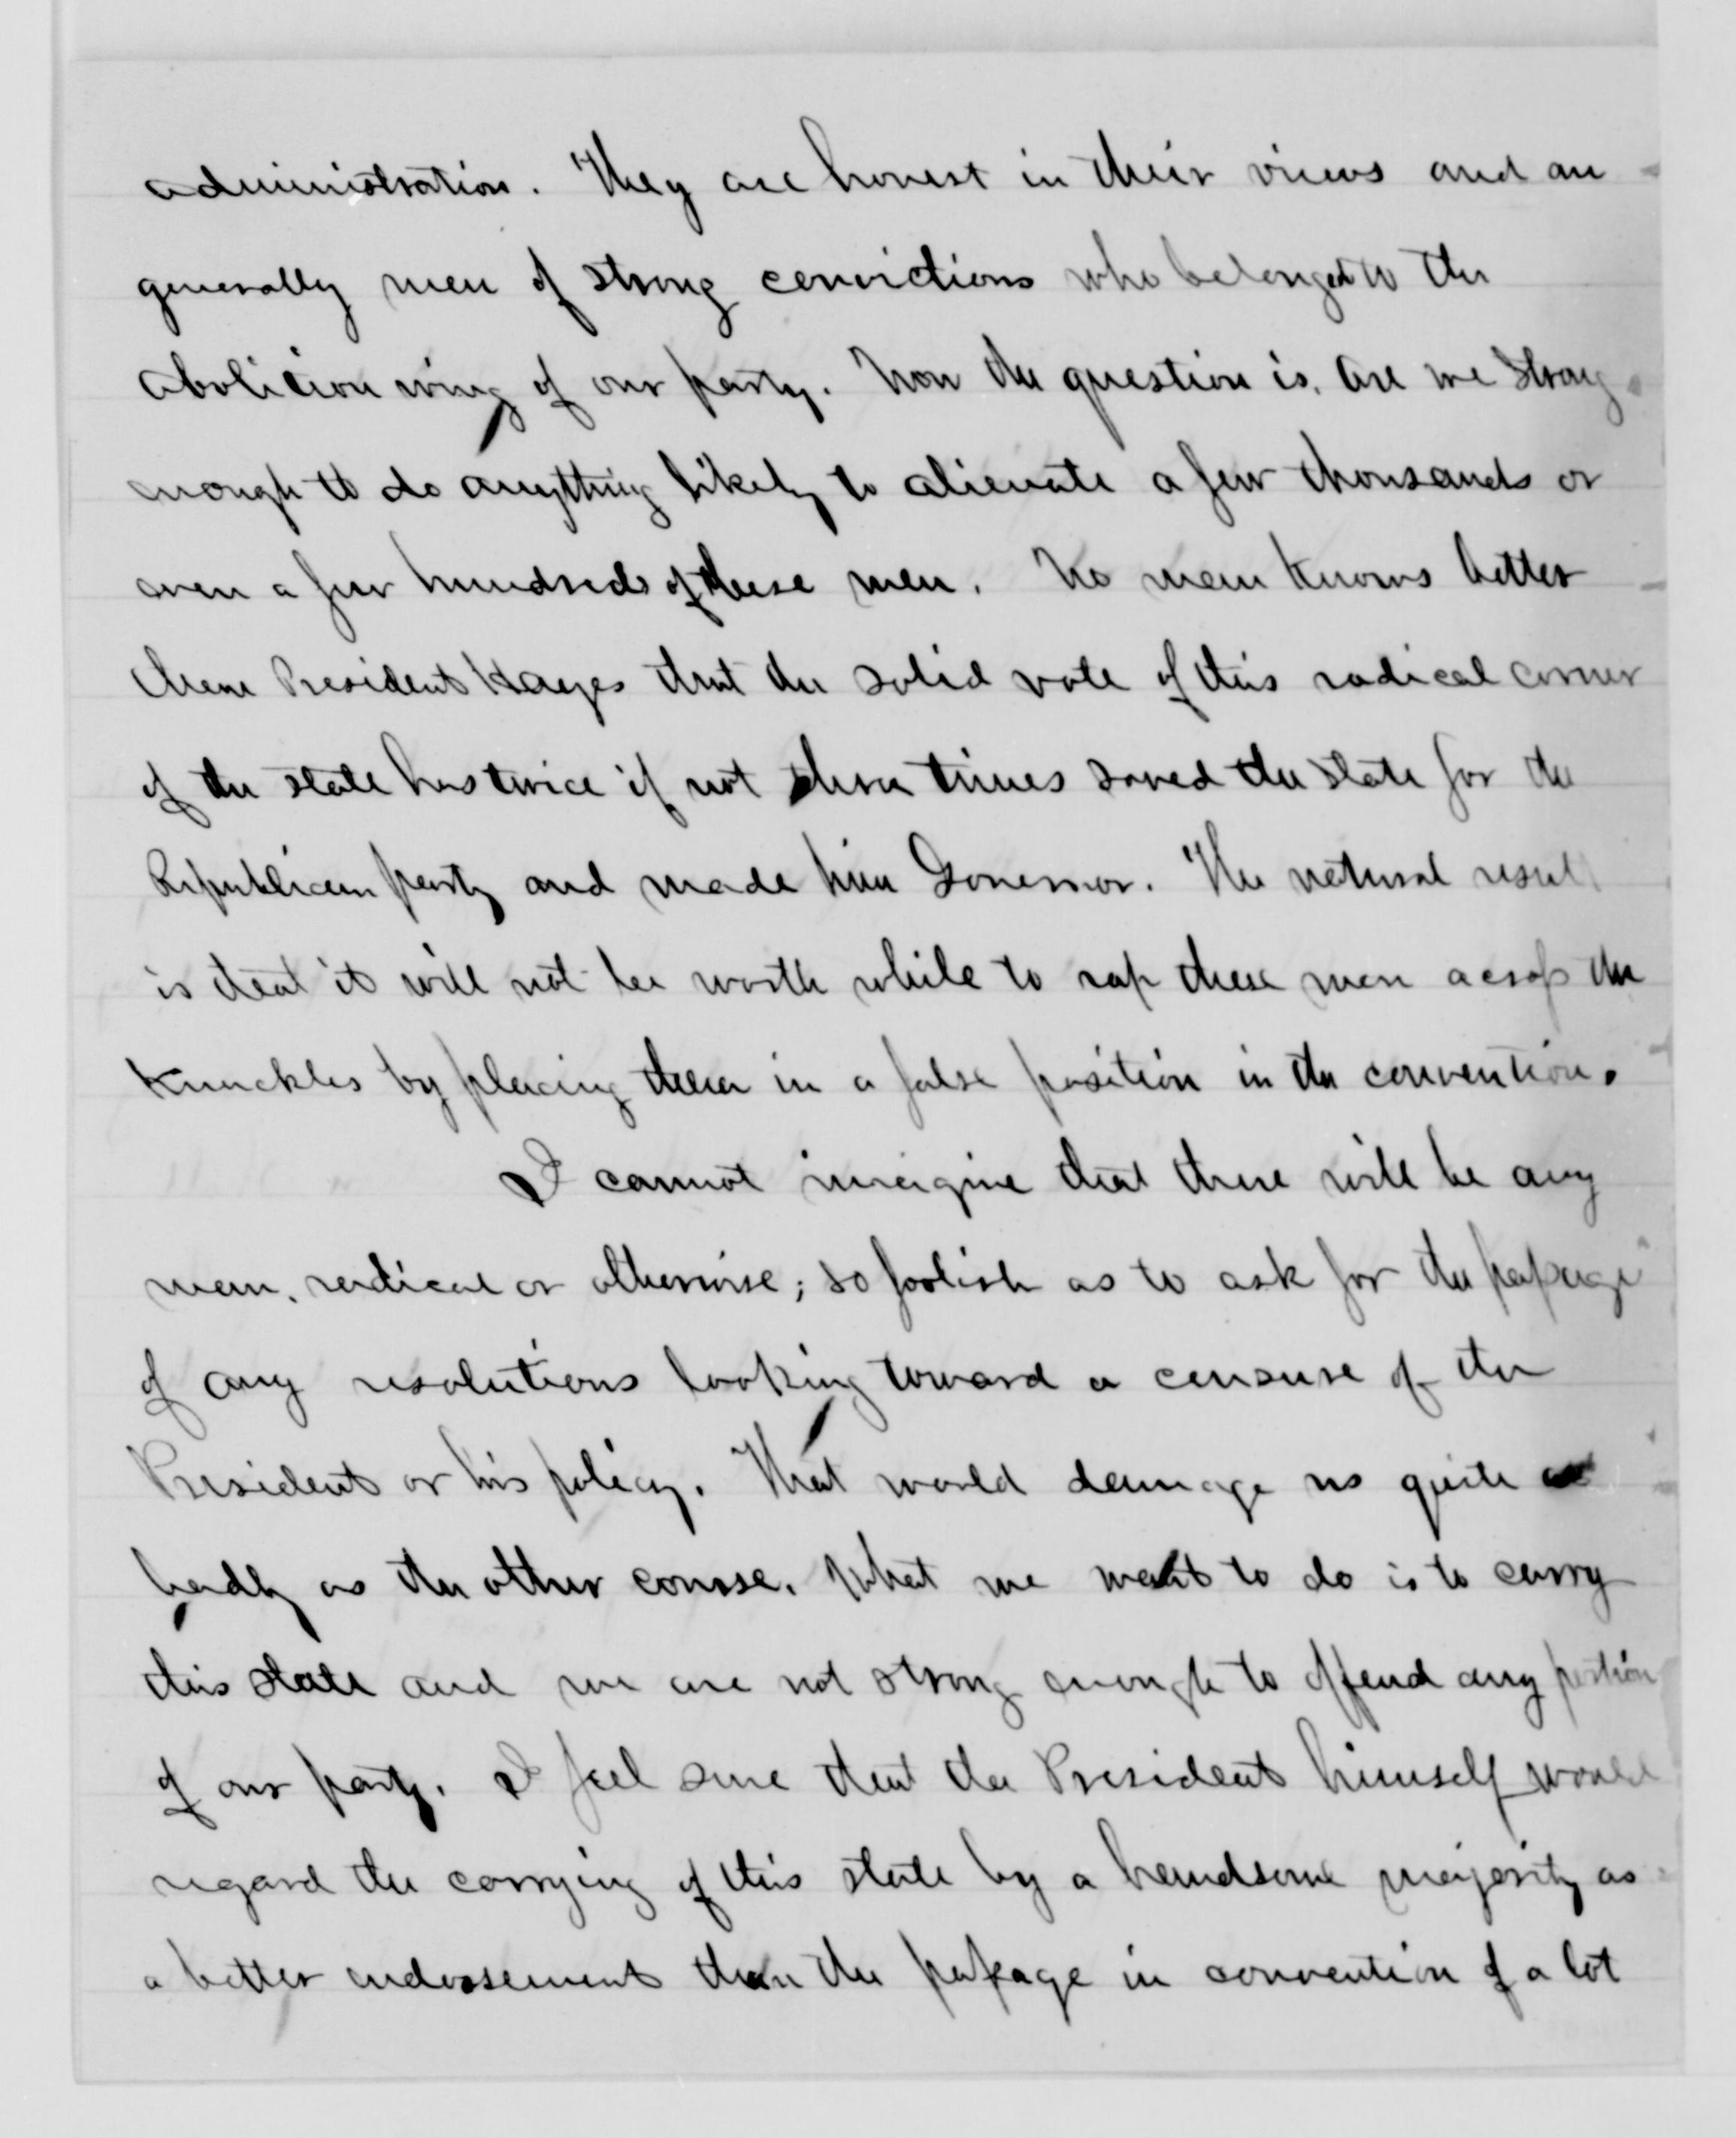 administration. They are honest in their views and are
generally men of strong convictions who belonged to the
abolition wing of our party. Now the question is, are we strong
enough to do anything likely to alienate a few thousands or
even a few hundreds of these men. No man knows better
than President Hayes that the solid vote of this radical corner
of the state has twice if not three times saved the state for the
Republican party and made him Governor. The natural result
is that it will not be worth while to rap these men across the
knuckles by placing them in a false position in the convention.
I cannot imagine that there will be any
man, radical or otherwise; so foolish as to ask for the passage
of any resolutions looking toward a censure of the
President or his policy. That would damage us quite as
badly as the other course. What we want to do is to carry
this state and we are not strong enough to offend any portion
of our party. I feel sure that the President himself would
regard the carrying of this state by a handsome majority as
a better endorsement than the passage in convention of a lot